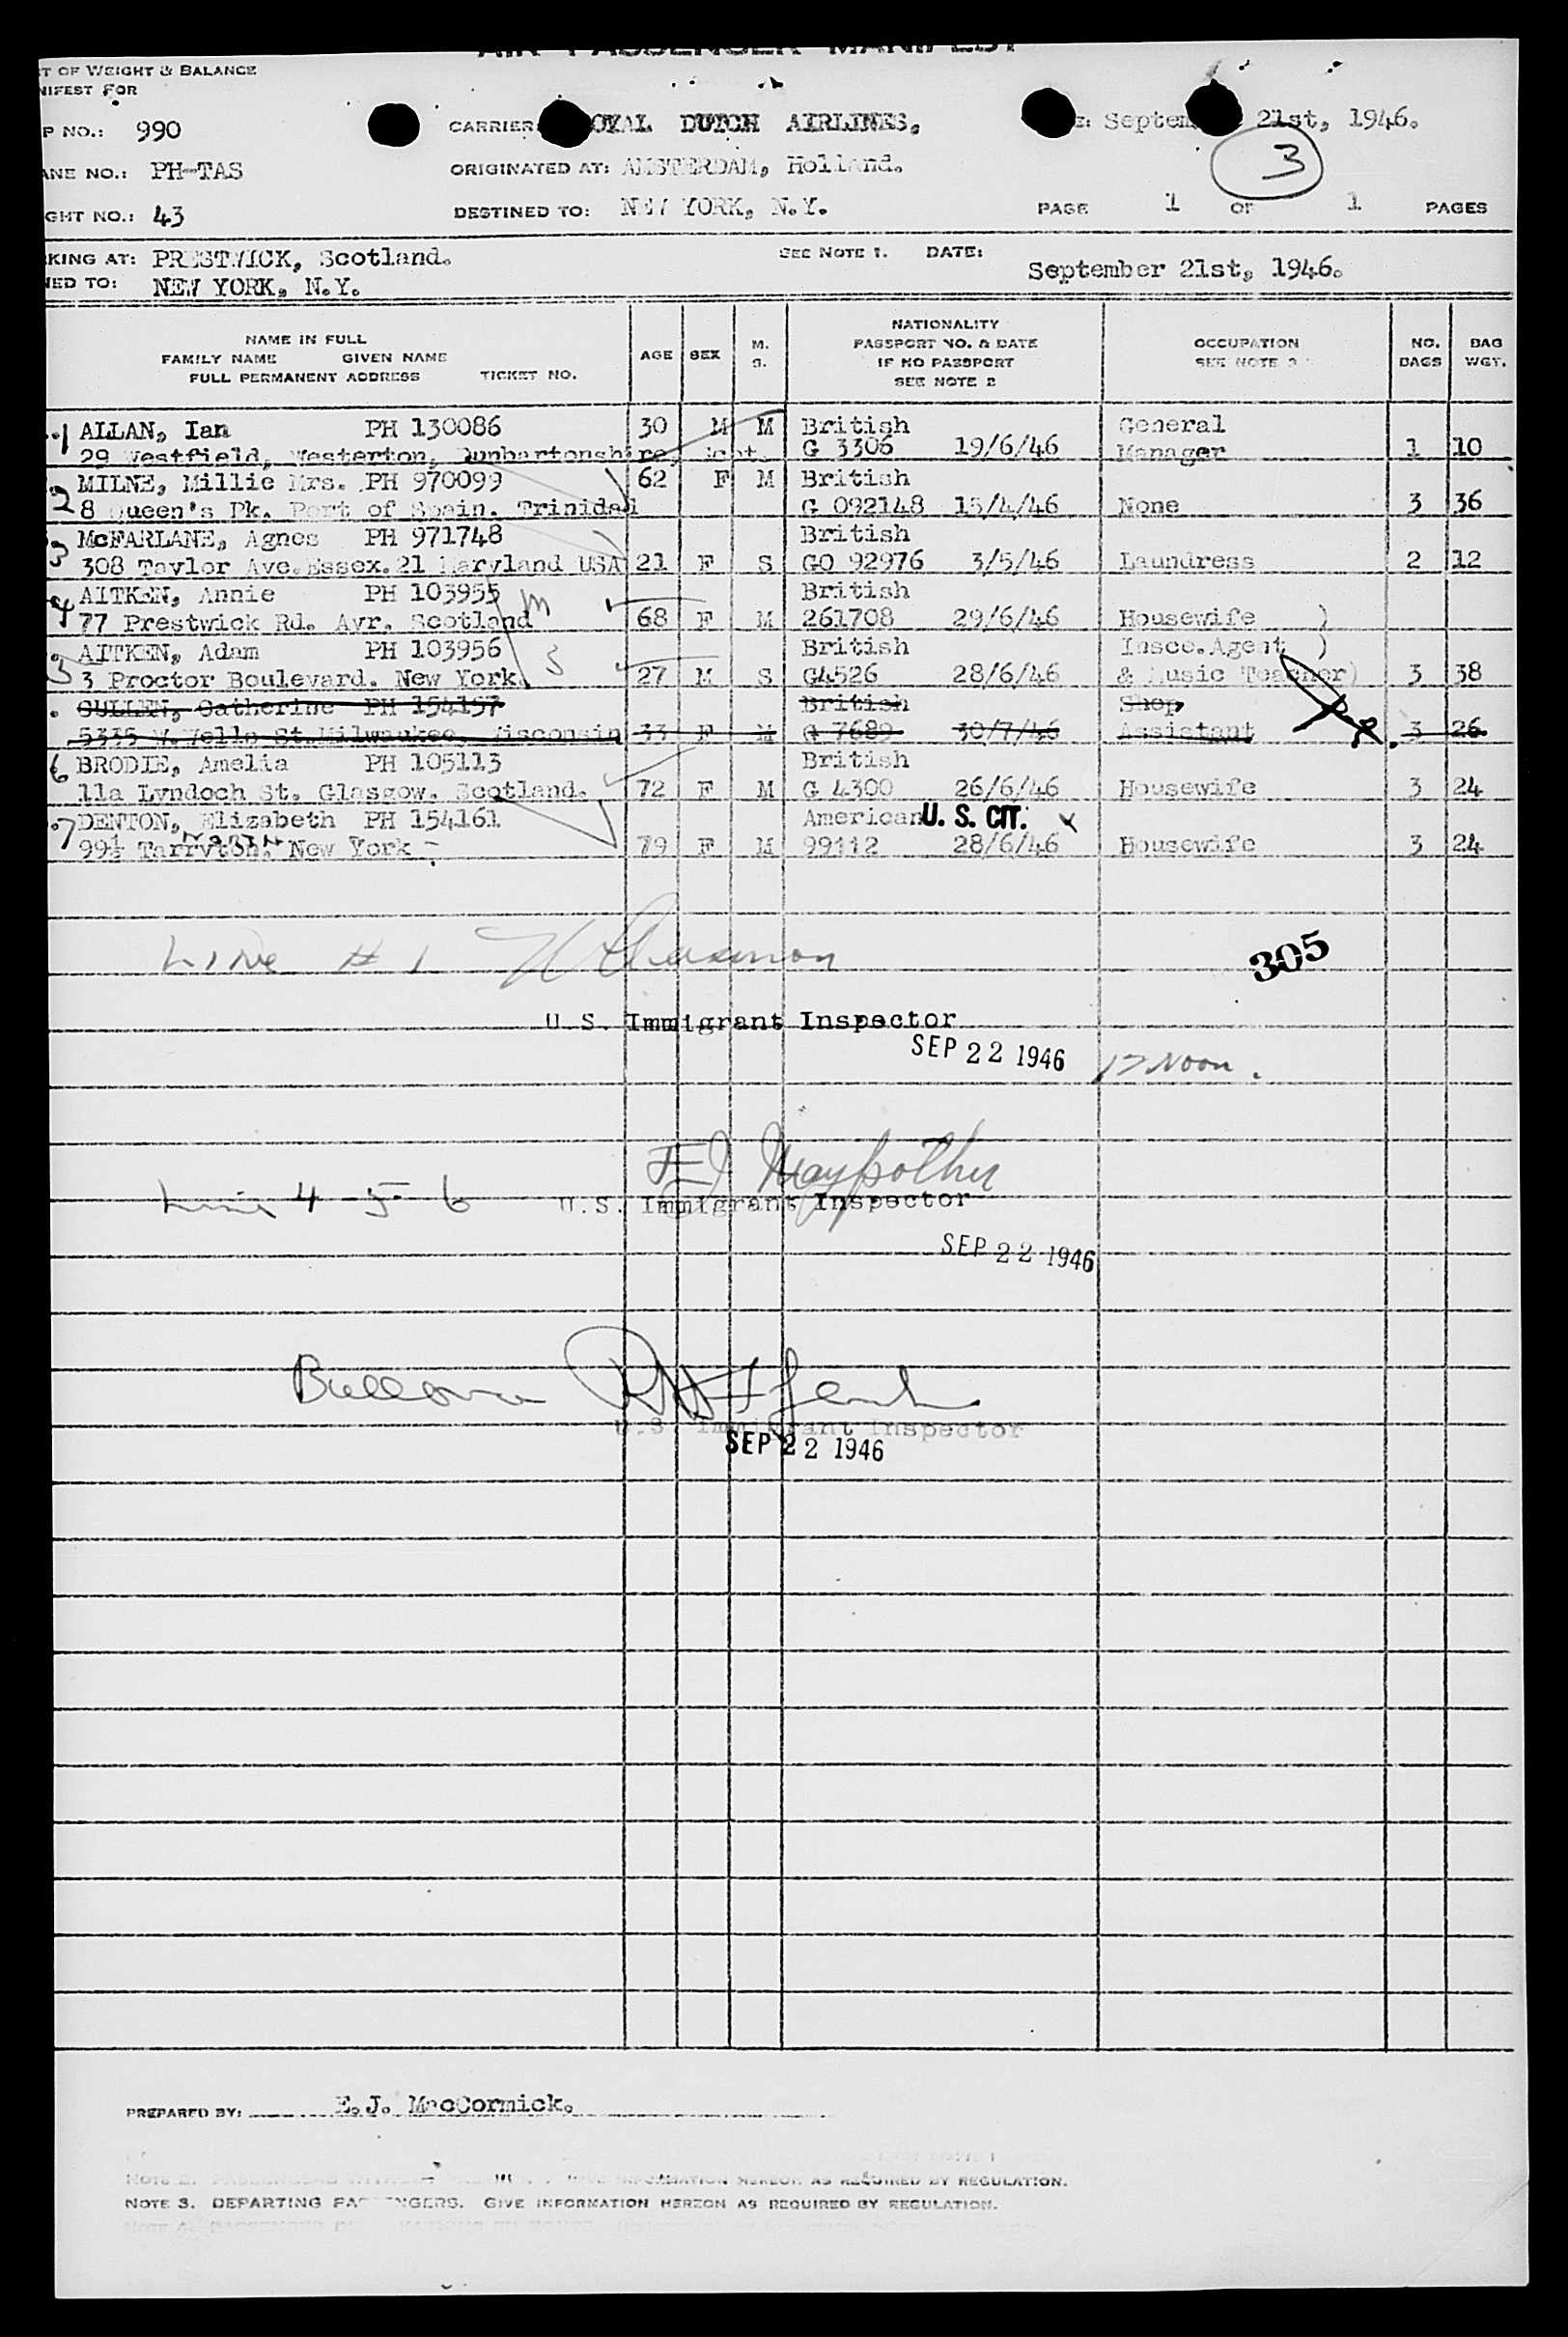 AIR PASSENGER MANIFEST
T OF WEIGHT & BALANCE
NIFEST FOR
P NO.: 990 CARRIER OYAL DUTCH AIRLINES. E: Septem 21st, 1946.
ANE NO.: PH-TAS ORIGINATED AT: AMSTERDAM, Holland. 3
GHT NO.: 43 DESTINED TO: NEW YORK, N.Y. PAGE 1 OF 1 PAGES
KING AT: PRESTWICK, Scotland. SEE NOTE 1. DATE: September 21st, 1946.
NED TO: NEW YORK, N.Y.
NAME IN FULL
FAMILY NAME GIVEN NAME
FULL PERMANENT ADDRESS TICKET NO.
AGE SEX M. S.
NATIONALITY
PASSPORT NO. & DATE
IF NO PASSPORT
SEE NOTE 2
OCCUPATION
SEE NOTE 3
NO. BAGS
BAG WGT.
1 ALLAN, Ian PH 130086 30 M M British General
29 Westfield, Westerton, Dunbartonshire, Scot. G 3306 19/6/46 Manager 1 10
2 MILNE, Millie Mrs. PH 970099 62 F M British
8 Queen's Pk. Port of Spain. Trinidad G 092148 15/4/46 None 3 36
3 McFARLANE, Agnes PH 971748 British
308 Taylor Ave. Essex. 21 Maryland USA 21 F S GO 92976 3/5/46 Laundress 2 12
4 AITKEN, Annie PH 103955 m British
77 Prestwick Rd. Ayr. Scotland 68 F M 261708 29/6/46 Housewife )
5 AITKEN, Adam PH 103956 S British Insce. Agent )
3 Proctor Boulevard. New York. 27 M S G4526 28/6/46 & Music Teacher) 3 38
. CULLEN, Catherine PH 154157 British Shop
5335 W. Wells St. Milwaukee, Wisconsin 33 F M G 7689 30/7/46 Assistant 3 26
6 BRODIE, Amelia PH 105113 British
11a Lyndoch St. Glasgow. Scotland. 72 F M G 4300 26/6/46 Housewife 3 24
7 DENTON, Elizabeth PH 154161 American U. S. CIT. x
99½ Tarrytown. New York 79 F M 99112 28/6/46 Housewife 3 24
Line # 1
305
U.S. Immigrant Inspector
SEP 22 1946 12 Noon.
Line 4 - 5 - 6
U.S. Immigrant Inspector
SEP 22 1946
U.S. Immigrant Inspector
SEP 22 1946
PREPARED BY: E.J. MacCormick.
INFORMATION HEREON AS REQUIRED BY REGULATION.
NOTE 3. DEPARTING PASSENGERS. GIVE INFORMATION HEREON AS REQUIRED BY REGULATION.